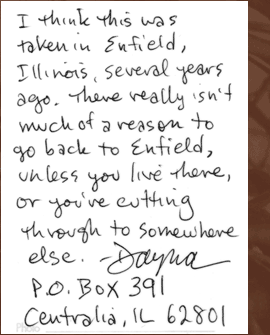 I think this was
taken in Enfield,
Illinois, several years
ago. There really isn't
much of a reason to
go back to Enfield,
unless you live there,
or you've cutting
through to somewhere
else. -Dayna
P.O. Box 391
Centralia, IL 62801